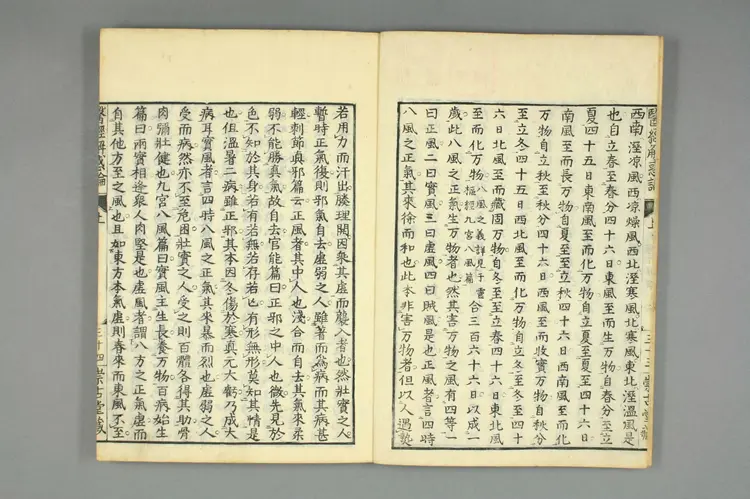 醫經解惑論
上
三十三
崇古堂藏
西南溼凉風西凉燥風西北溼寒風北寒風東北溼溫風是
也自立春至春分四十六日東風至而生万物自春分至立
夏四十五日東南風至而化万物自立夏至夏至四十六日
南風至而長万物自夏至至立秋四十六日西南風至而化
万物自立秋至秋分四十六日西風至而收實万物自秋分
至立冬四十五日西北風至而化万物自立冬至冬至四十
六日北風至而藏固万物自冬至至立春四十六日東北風
至而化万物八風之義詳見于靈樞經九宮八風篇合三百六十六日以成一
歲此八風之正氣生万物者也然其害万物之風有四等一
曰正風二曰實風三曰虛風四曰賊風是也正風者言四時
八風之正氣其來徐而和也此本非害万物者但以人遇𤍠
若用力而汗出腠理開因乘其虛而襲入者也然壯實之人
暫時正氣復則邪氣自去虛弱之人雖著而爲病而其病甚
輕刺節眞邪篇云正風者其中人也淺合而自去其氣來柔
弱不能勝眞氣故自去官能篇曰正邪之中人也微先見於
色不知於其身若有若無若存若亡有形無形莫知其情是
也但溫暑二病雖正邪其本因冬傷於寒眞元大虧乃成大
病耳實風者言四時八風之正氣其來暴而烈也虛弱之人
受而病然亦不至危困壯實之人受之則百體各得其助骨
肉彌壯健也九宮八風篇曰實風主生長養万物百病始生
篇曰兩實相逢衆人肉堅是也虛風者謂八方之正氣虛而
自其他方至之風也且如東方本氣虛則春來而東風不至
醫經解惑論
上
三十四
崇古堂藏